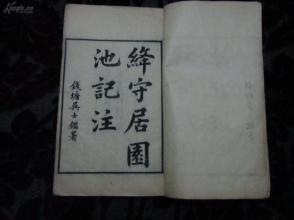 絳守居園
池記注
錢塘吳士鑑署